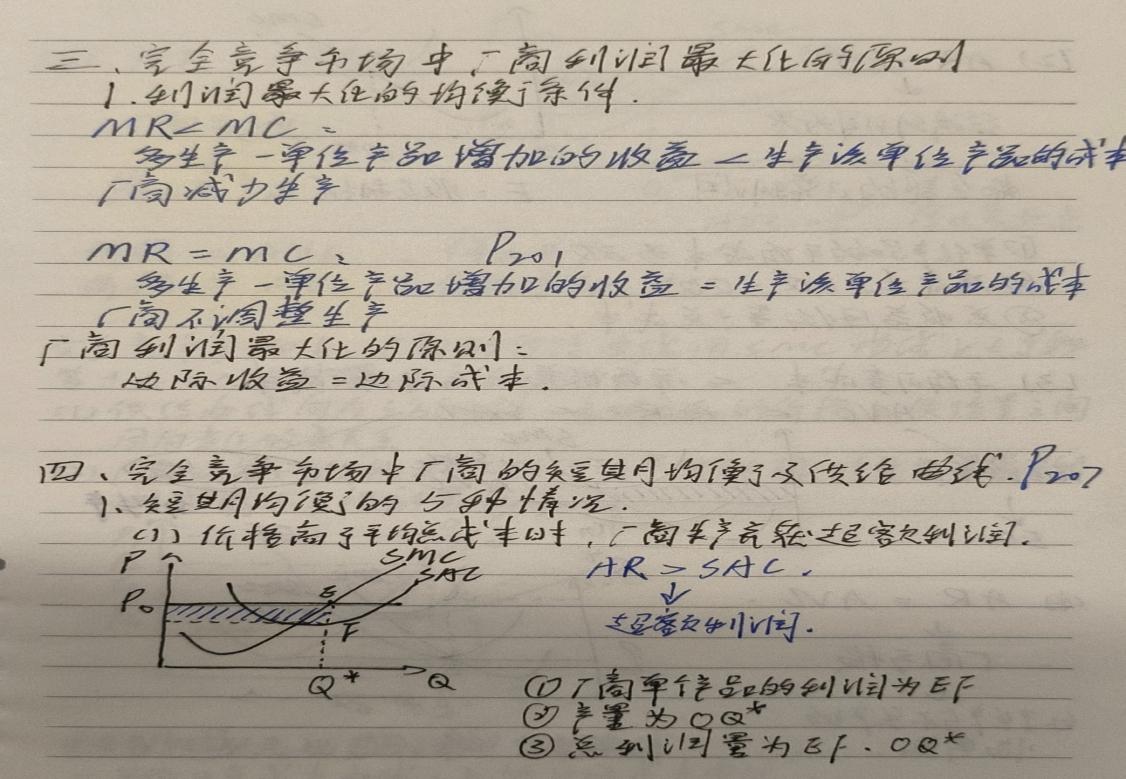 三、完全竞争市场中厂商利润最大化的原则
1.利润最大化的均衡条件.
MR<MC:
多生产一单位产品增加的收益<生产该单位产品的成本
厂商减少生产
MR=MC: P201
多生产一单位产品增加的收益=生产该单位产品的成本
厂商不调整生产
厂商利润最大化的原则:
边际收益=边际成本.
四、完全竞争市场中厂商的短期均衡及供给曲线.P207
1、短期均衡的5种情况.
(1)价格高于平均总成本时,厂商生产获超额利润.
P SMC
SAC
AR>SAC.
P0 E
↓
F 超额利润.
Q* Q
①厂商单个产品的利润为EF
②产量为OQ*
③总利润量为EF·OQ*